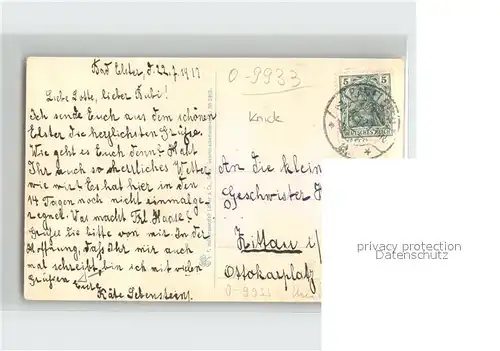 Bad Elster, d. 22.7.1911
O-9933
Liebe Lotte, lieber Rudi!
Ich sende Euch aus dem schönen
Knick
Elster die herzlichsten Grüße.
Wie geht es Euch denn? Habt
Ihr auch so herrliches Wetter
wie wir? Es hat hier in den
14 Tagen noch nicht einmal ge-
regnet. Was macht Frl. Haase?
Grüße Sie bitte von mir. In der
Hoffnung, daß Ihr mir auch
mal schreibt, bin ich mit vielen
Grüßen Eure
Käte Lebenstein.
5 5
DEUTSCHES REICH
An die kleinen
Geschwister
Zittau i/
Ottokarplatz
O-9933
privacy protection
Datenschutz